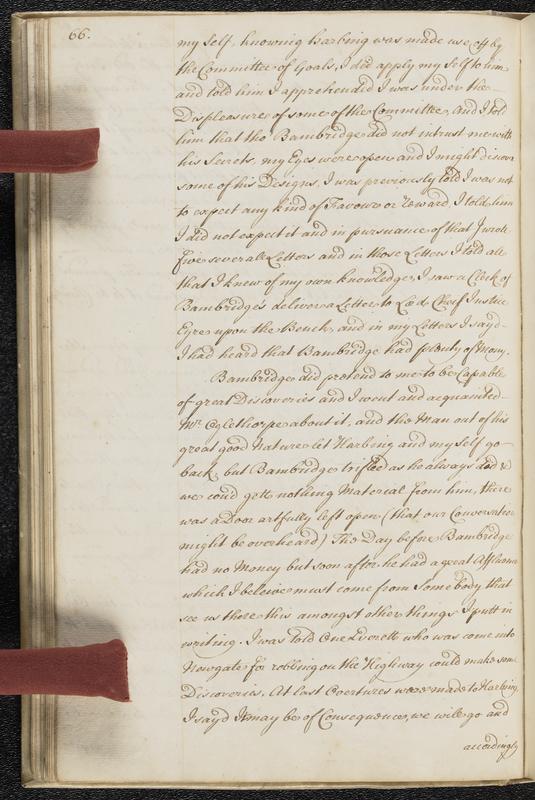 66.
my Self, knowing Harbing was made use off by
the Committee of Goals, I did apply my Self to him
and told him I apprehended I was under the
Displeasure of some of the Committee, and I told
him that tho Bambridge did not intrust me with
his Secrets, my Eyes were open and I might discover
some of his Designs, I was previously told I was not
to expect any kind of Favour or Reward I told him
I did not expect it and in pursuance of that I wrote
five severall Letters and in those Letters I told all
that I knew of my own knowledge, I saw a Clerk of
Bambridge's deliver a Letter to Lord Cheif Justice
Eyre upon the Bench, and in my Letters I sayd
I had heard that Bambridge had plenty of Mony.
Bambridge did pretend to me to be Capable
of great Discoveries and I went and acquainted
Mr. Oglethorpe about it, and the Man out of his
great good Nature let Harbing and my self go
back, but Bambridge trifled as he always did &
we coud gett nothing Material from him, there
was a Door artfully left open (that our Conversation
might be overheard) The Day before Bambridge
had no Money but soon after he had a great Affluence
which I beleive must come from Some body that
see us there this amongst other things I putt in
writing. I was told One Everett who was come into
Newgate for robbing on the Highway could make some
Discoveries. At last Overtures were made to Harbing
I sayd It may be of Consequence, we will go and
accordingly